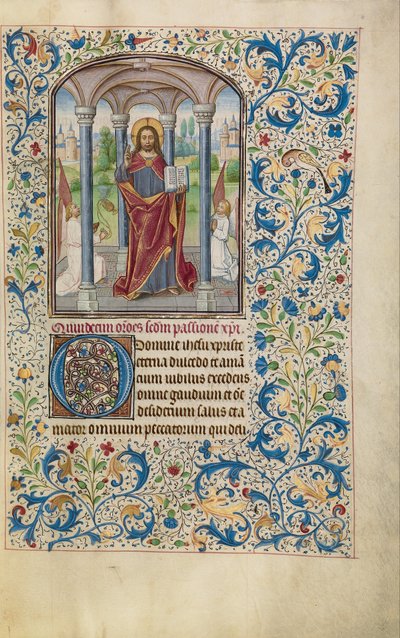 Quindecim or̄oes sc̄dm passione xp̄i
O Domine ihesu xpriste
eterna dulcedo et amā
cium iubilus excedens
omne gaudium et ōe
desiderium salus et a
mator omnium peccatorum qui deli